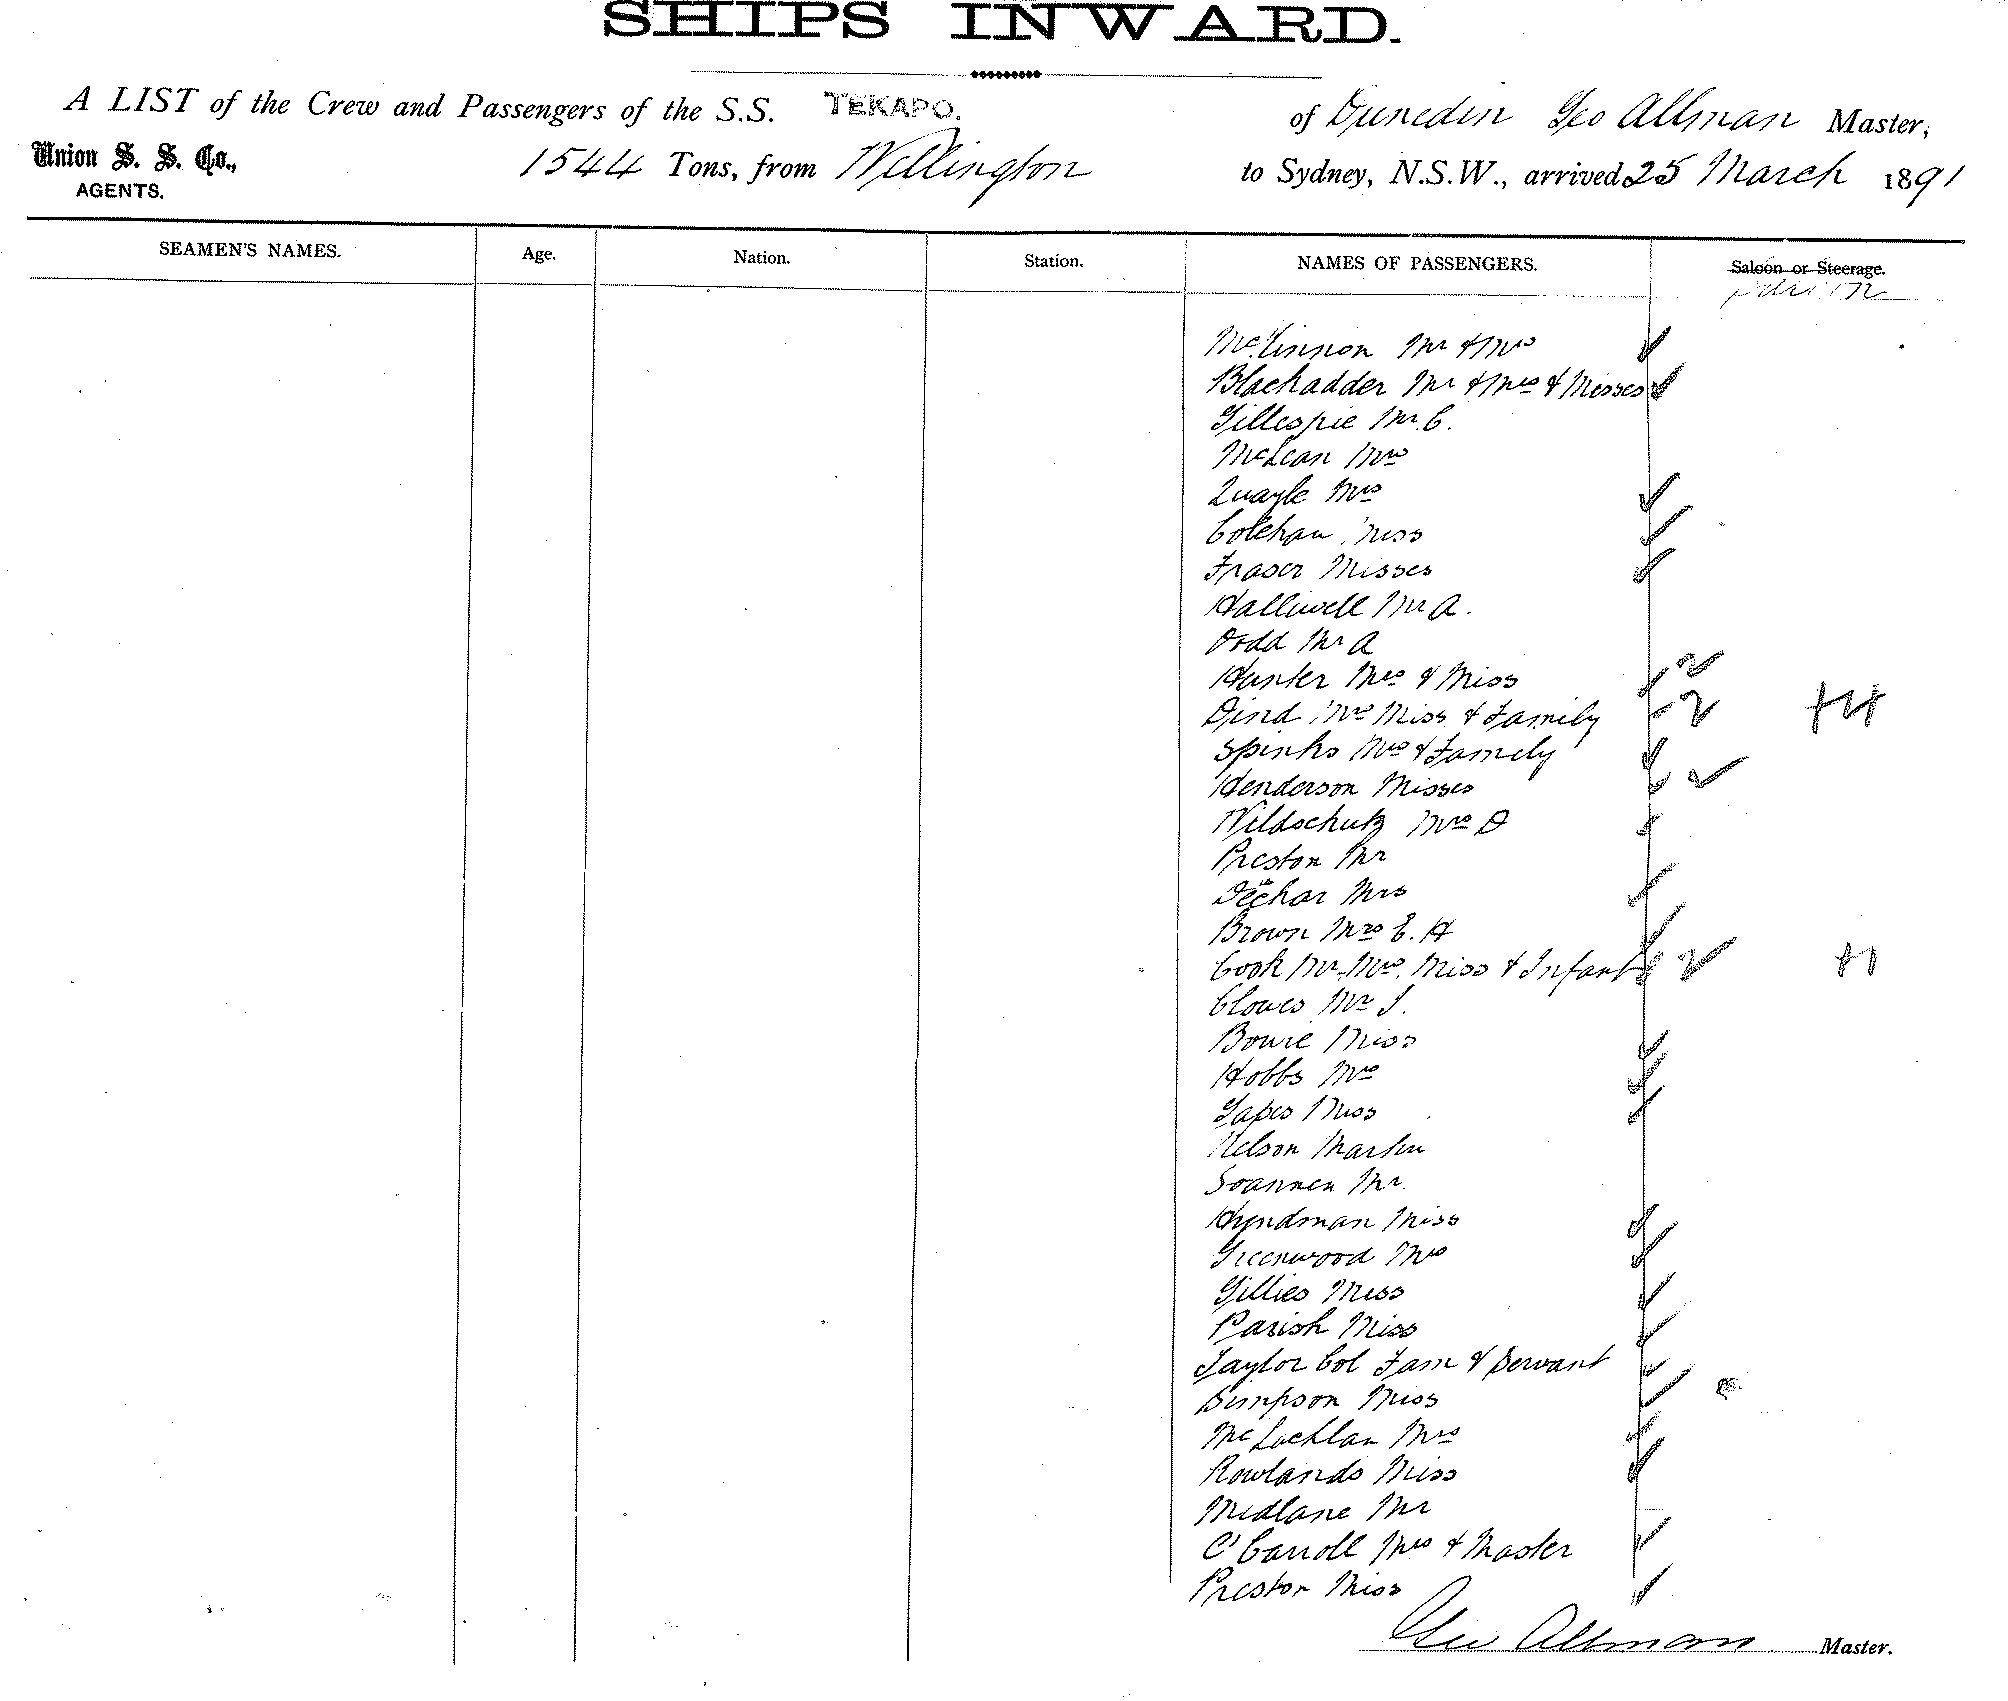 SHIPS INWARD.
A LIST of the Crew and Passengers of the S.S. TEKAPO. of Dunedin Geo Allman Master,
Union S. S. Co., AGENTS.
1544 Tons, from Wellington to Sydney, N.S.W., arrived 25 March 1891
SEAMEN'S NAMES. Age. Nation. Station. NAMES OF PASSENGERS. Saloon or Steerage.
McKinnon Mr & Mrs
Blackadder Mr & Mrs & Misses
Gillespie Mr C.
McLean Mrs
Quayle Mrs
Miss
Fraser Misses
Halliwell Mr A.
Dodd Mr A
Hunter Mrs & Miss 2
Dind Mrs Miss & Family 2
Spinks Mrs & Family
Henderson Misses
Wildschutz Mrs D
Preston Mr
Mrs
Brown Mrs E. H
Cook Mr. Mrs. Miss & Infant 2 +1
Clowes Mr J.
Bowie Miss
Hobbs Mrs
Miss
Nelson Martin
Mr.
Hyndman Miss
Greenwood Mrs
Gillies Miss
Parish Miss
Taylor Col Fam & Servant
Simpson Miss
McLachlan Mrs
Rowlands Miss
Midlane Mr
O'Carroll Mrs & Master
Preston Miss
Geo Allman Master.